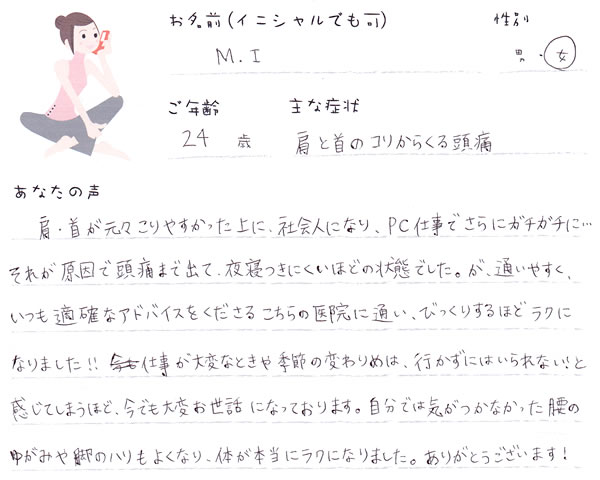 お名前(イニシャルでも可) 性別
M.I 男・女
ご年齢 主な症状
24 歳 肩と首のコリからくる頭痛
あなたの声
肩・首が元々こりやすかった上に、社会人になり、PC仕事でさらにガチガチに…
それが原因で頭痛まで出て、夜寝つきにくいほどの状態でした。が、通いやすく、
いつも適確なアドバイスをくださるこちらの医院に通い、びっくりするほどラクに
なりました!! 仕事が大変なときや季節の変わりめは、行かずにはいられない!と
感じてしまうほど、今でも大変お世話になっております。自分では気がつかなかった腰の
ゆがみや脚のハリもよくなり、体が本当にラクになりました。ありがとうございます!